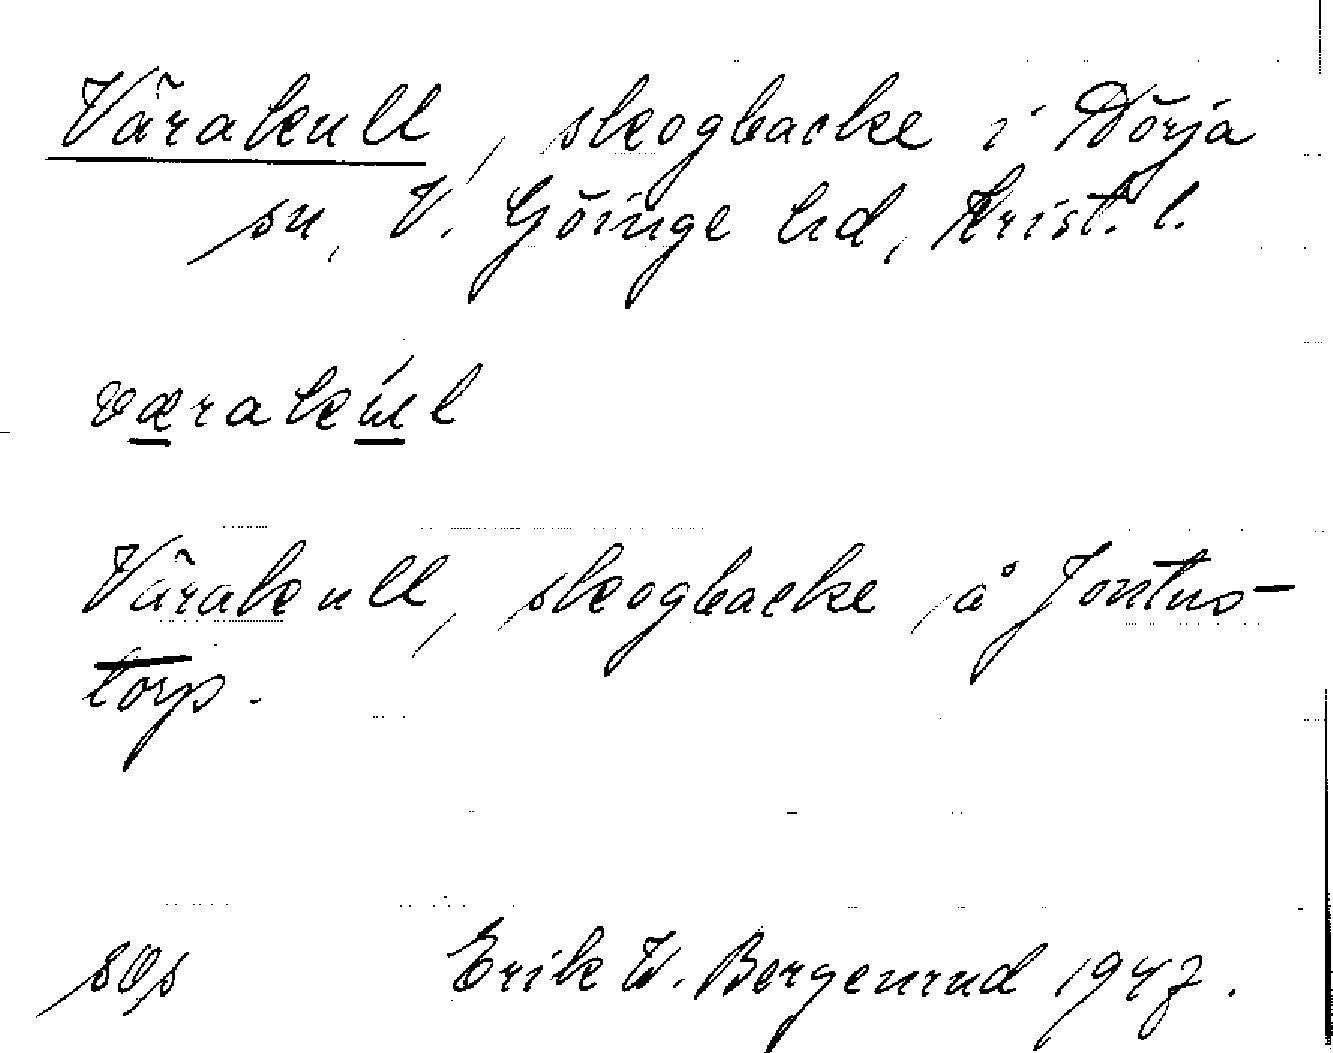 Värakull, skogbacke i Dörja
sn, V. Göinge hd, Krist. l.
værakúl
Värakull, skogbacke å Jontus-
torp.
Erik W. Bergenrud 1947.